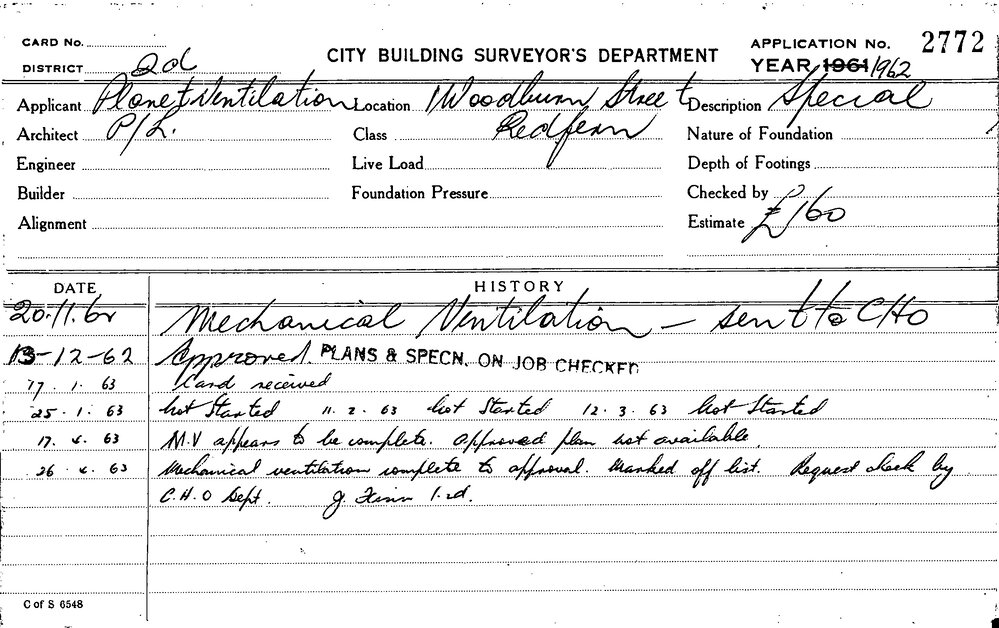 CARD No.
CITY BUILDING SURVEYOR'S DEPARTMENT
APPLICATION No. 2772
DISTRICT 2d
YEAR 1961/1962
Applicant Planet Ventilation Location 1 Woodburn Street Description Special
Architect P/L. Class Redfern Nature of Foundation
Engineer Live Load Depth of Footings
Builder Foundation Pressure Checked by
Alignment Estimate £160
DATE HISTORY
20.11.62 Mechanical Ventilation — sent to CHO
13-12-62 Approved. PLANS & SPECN. ON JOB CHECKED
17. 1. 63 Card received
25. 1. 63 Not Started 11. 2. 63 Not Started 12. 3. 63 Not Started
17. 4. 63 M.V appears to be complete. Approved plan not available.
26. 4. 63 Mechanical ventilation complete to approval. Marked off list. Request check by
C.H.O Dept. J.
C of S 6548